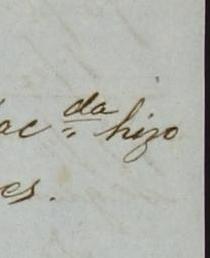 ac da hizo
es.